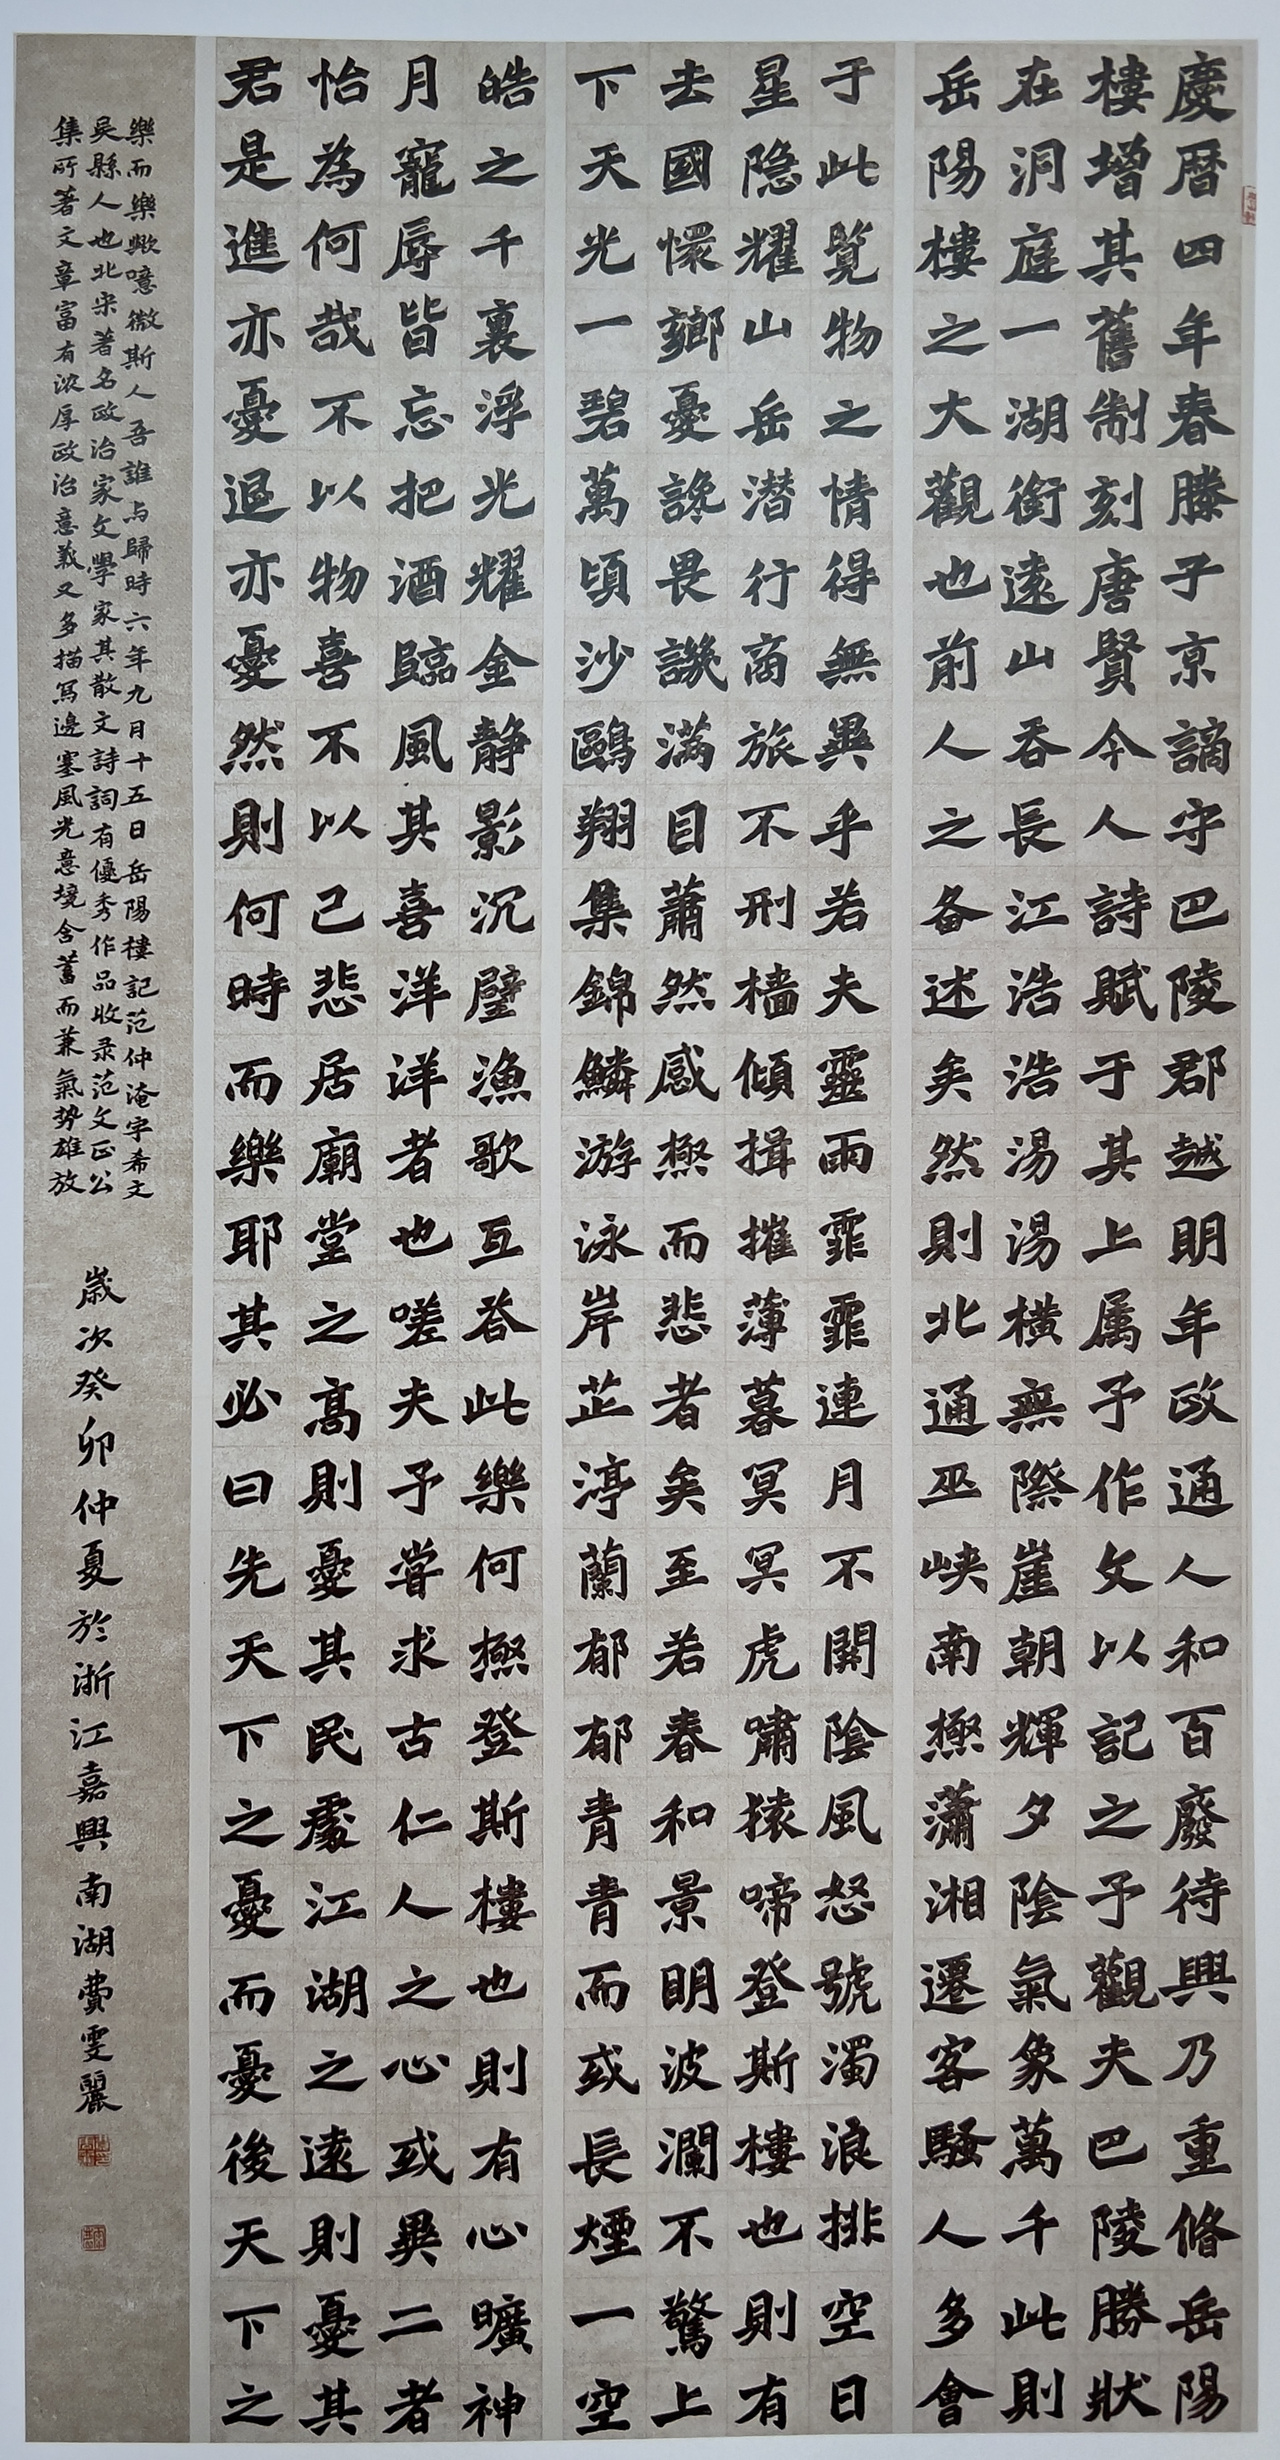 慶曆四年春滕子京謫守巴陵郡越明年政通人和百廢待興乃重脩岳陽
樓增其舊制刻唐賢今人詩賦于其上属予作文以記之予觀夫巴陵勝狀
在洞庭一湖銜遠山吞長江浩浩湯湯橫無際崖朝輝夕陰氣象萬千此則
岳陽樓之大觀也前人之备述矣然則北通巫峡南極瀟湘遷客騷人多會
于此覧物之情得無異乎若夫霪雨霏霏連月不開陰風怒號濁浪排空日
星隐耀山岳潜行商旅不刑檣傾揖摧薄暮冥冥虎嘯猿啼登斯樓也則有
去國懷鄉憂讒畏譏满目蕭然感極而悲者矣至若春和景明波瀾不驚上
下天光一碧萬頃沙鷗翔集錦鱗游泳岸芷渟蘭郁郁青青而或長煙一空
皓之千裏浮光耀金静影沉璧漁歌互答此樂何極登斯樓也則有心曠神
月寵辱皆忘把酒臨風其喜洋洋者也嗟夫予嘗求古仁人之心或異二者
怡為何哉不以物喜不以己悲居廟堂之高則憂其民處江湖之遠則憂其
君是進亦憂退亦憂然則何時而樂耶其必曰先天下之憂而憂後天下之
樂而樂歟噫微斯人吾誰与歸時六年九月十五日岳陽樓記范仲淹字希文
吴縣人也北宋著名政治家文學家其散文詩詞有優秀作品收录范文正公
集所著文章富有浓厚政治意義又多描寫邊塞風光意境含蓄而兼氣势雄放
歲次癸卯仲夏於浙江嘉興南湖費雯麗